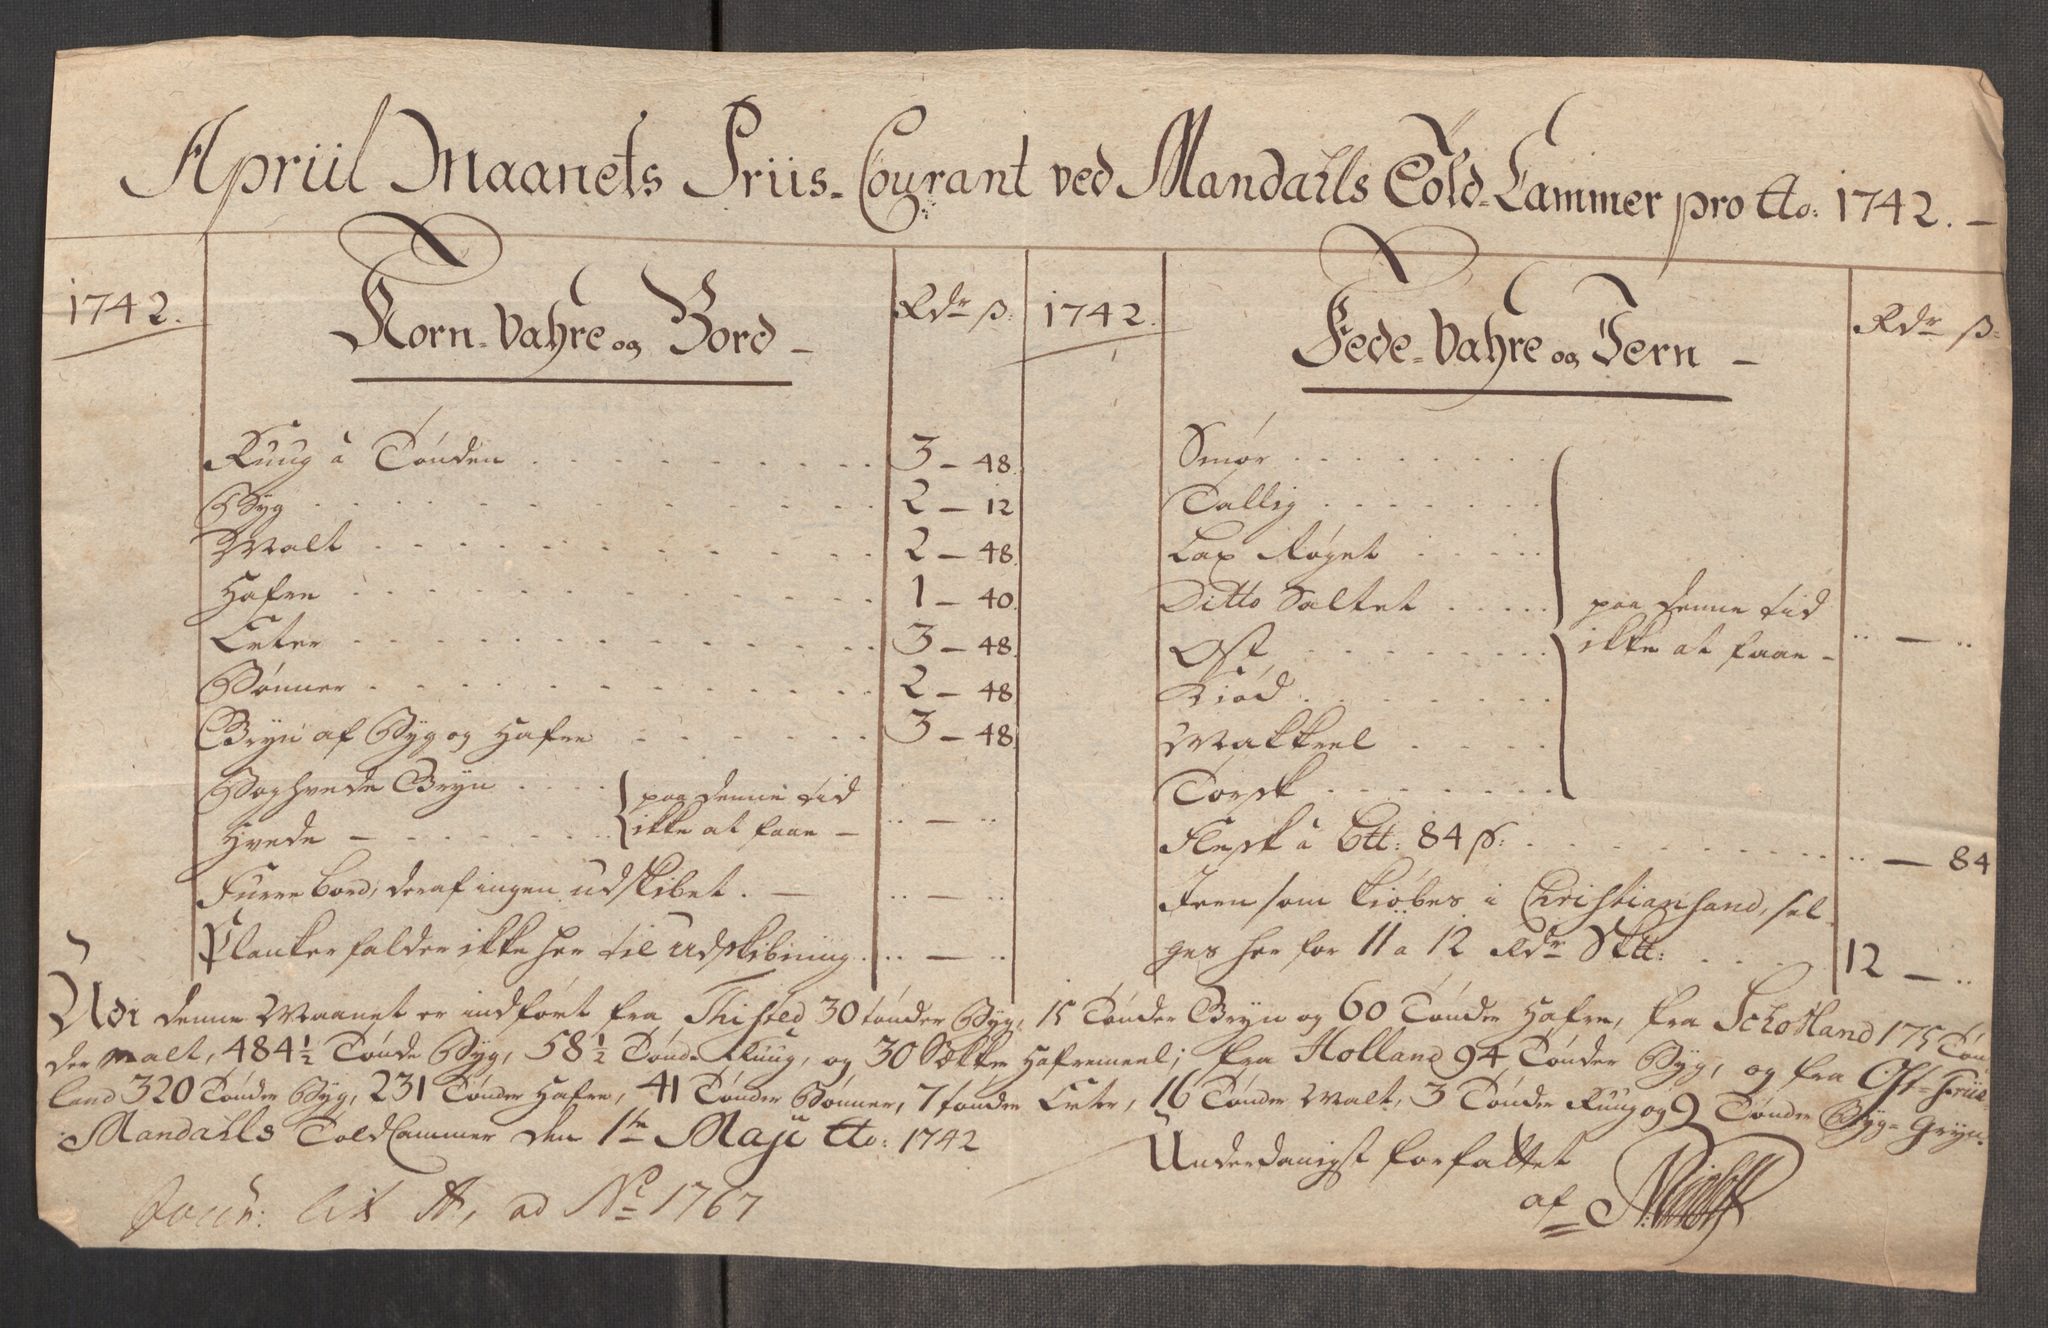 Apriil Maanets Priis-Courant ved Mandahls Told-Cammer pro Ao: 1742. —
1742.
Korn-Vahre og Bord —
Rdr ß:
Ruug à Tønden . . . 3 — 48.
Byg . . . 2 — 12
Malt . . . 2 — 48.
Hafre . . . 1 — 40.
Erter . . . 3 — 48.
Bønner . . . 2 — 48
Gryn af Byg og Hafre . . . 3 — 48
Boghvede Gryn . . . } paa denne tid
Hvede — . . . } ikke at faae — .. — ..
Furre bord, deraf ingen udskibet. — .. — ..
Planker falder ikke her til udskibning. .. — ..
1742.
Fede-Vahre og Jern —
Rdr ß:
Smør . . .
Tallig . . .
Lax Røget . . .
Ditto Saltet . . . } paa denne tid
Ost . . . } ikke at faae — .. — ..
Kiød . . .
Makkreel . . .
Torsk . . .
Flesk à Ctt: 84 ß: . . . .. — 84
Jern som kiøbes i Christiansand, sel-
ges her for 11 a 12 Rdr Sktt: . . . 12 — ..
Udi denne Maanet er indført fra Thisted 30 tønder Byg, 15 Tønder Gryn og 60 Tønder Hafre, fra Schotland 175 Tøn-
der malt, 484 1/2 Tønde Byg, 58 1/2 Tønde Ruug, og 30 Sække Hafremeel; fra Holland 94 Tønder Byg, og fra Ost-Friis-
land 320 Tønder Byg, 231 Tønder Hafre, 41 Tønder Bønner, 7 tønder Erter, 16 Tønder Malt, 3 Tønder Ruug og 9 Tønder Byg-Gryn.
Mandahls Told Cammer den 1te Maji Ao: 1742
Underdanigst forfattet
af
Docum: Lit A, ad No 1767